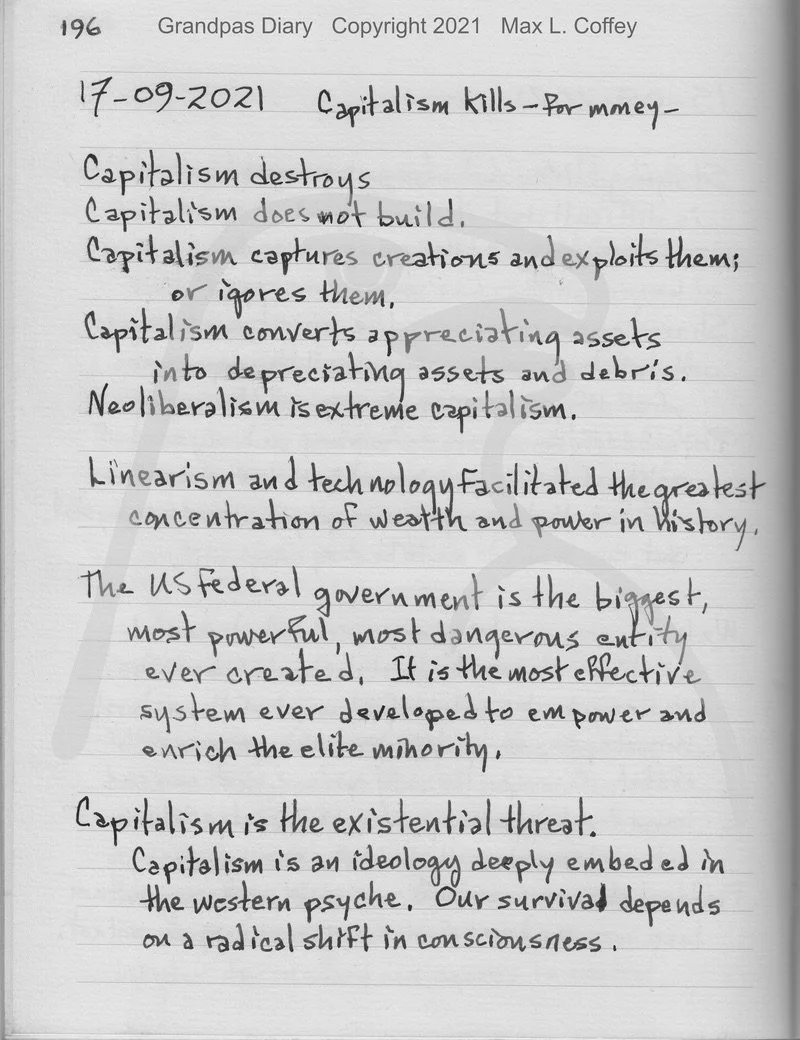 196 Grandpas Diary Copyright 2021 Max L. Coffey
17-09-2021 Capitalism kills - for money -
Capitalism destroys
Capitalism does not build.
Capitalism captures creations and exploits them;
or igores them.
Capitalism converts appreciating assets
into depreciating assets and debris.
Neoliberalism is extreme capitalism.
Linearism and technology facilitated the greatest
concentration of wealth and power in history.
The US Federal government is the biggest,
most powerful, most dangerous entity
ever created. It is the most effective
system ever developed to empower and
enrich the elite minority.
Capitalism is the existential threat.
Capitalism is an ideology deeply embeded in
the western psyche. Our survival depends
on a radical shift in consciousness.